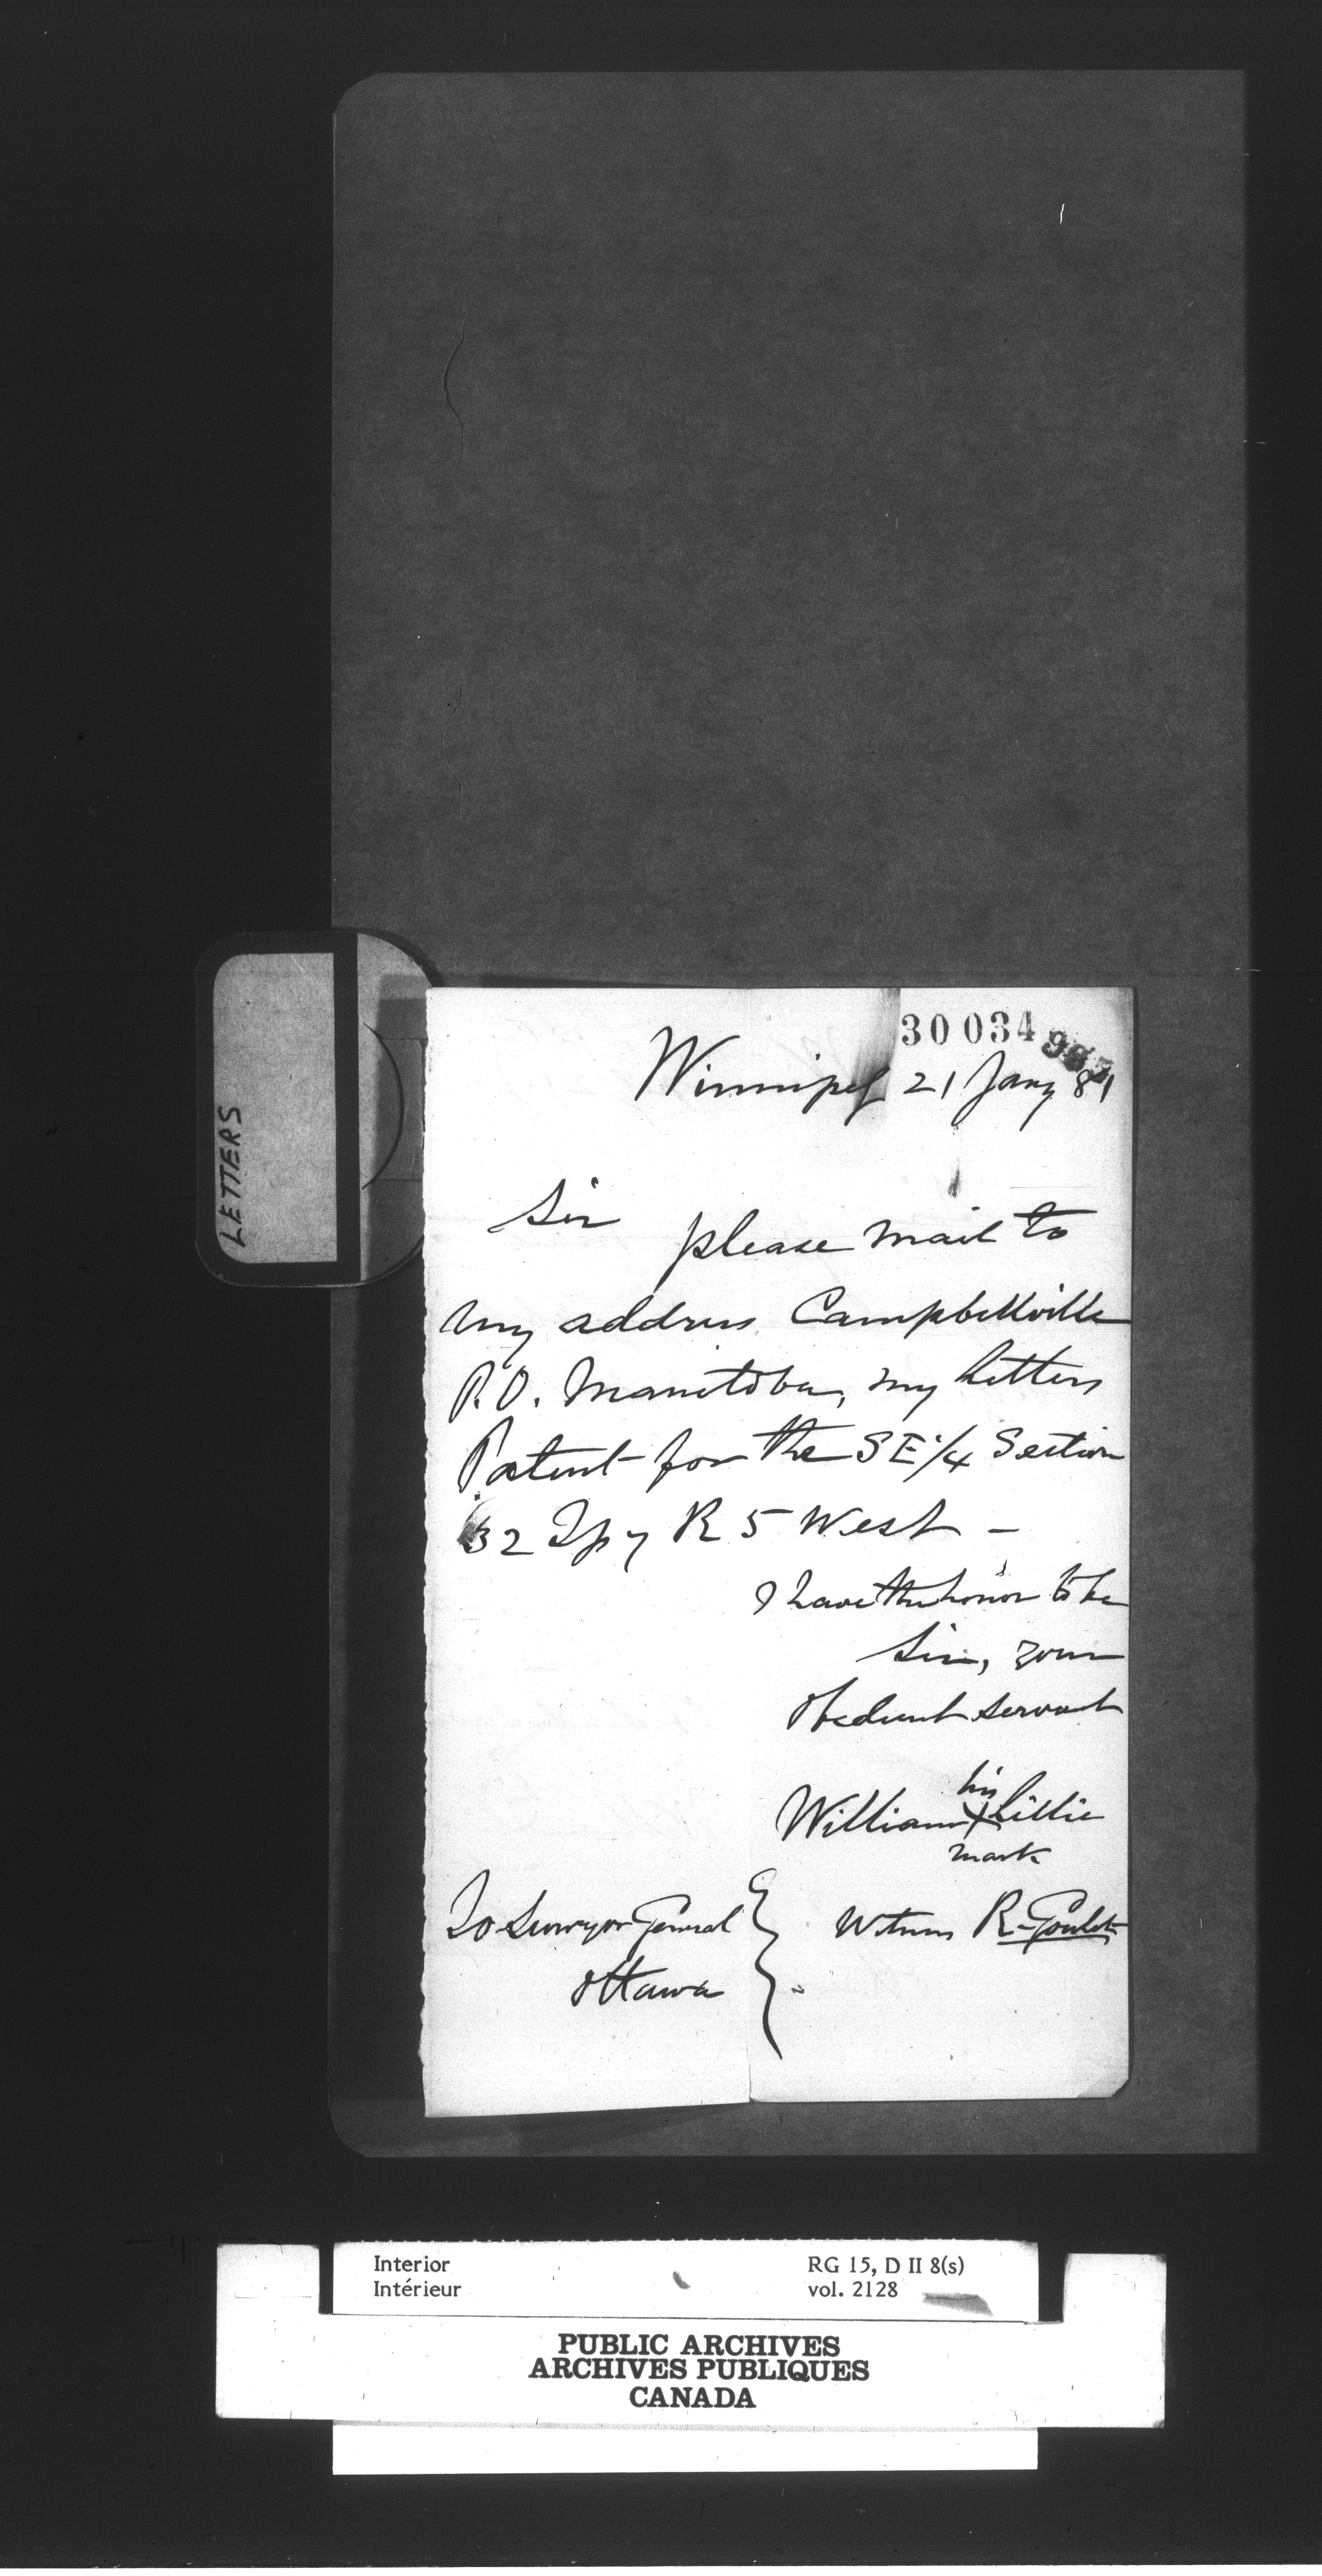 LETTERS
30 034
Winnipeg 21 Jany 81
Sir
please mail to
my address Campbellville
P.O. Manitoba, my Letters
Patent for the SE 1/4 Section
32 Tp 7 R 5 West -
I have the honor to be
Sir, your
Obedient servant
his
William X Lillie
mark
To Surveyor General
Ottawa
Witness R. Goulet
Interior
Intérieur
RG 15, D II 8(s)
vol. 2128
PUBLIC ARCHIVES
ARCHIVES PUBLIQUES
CANADA